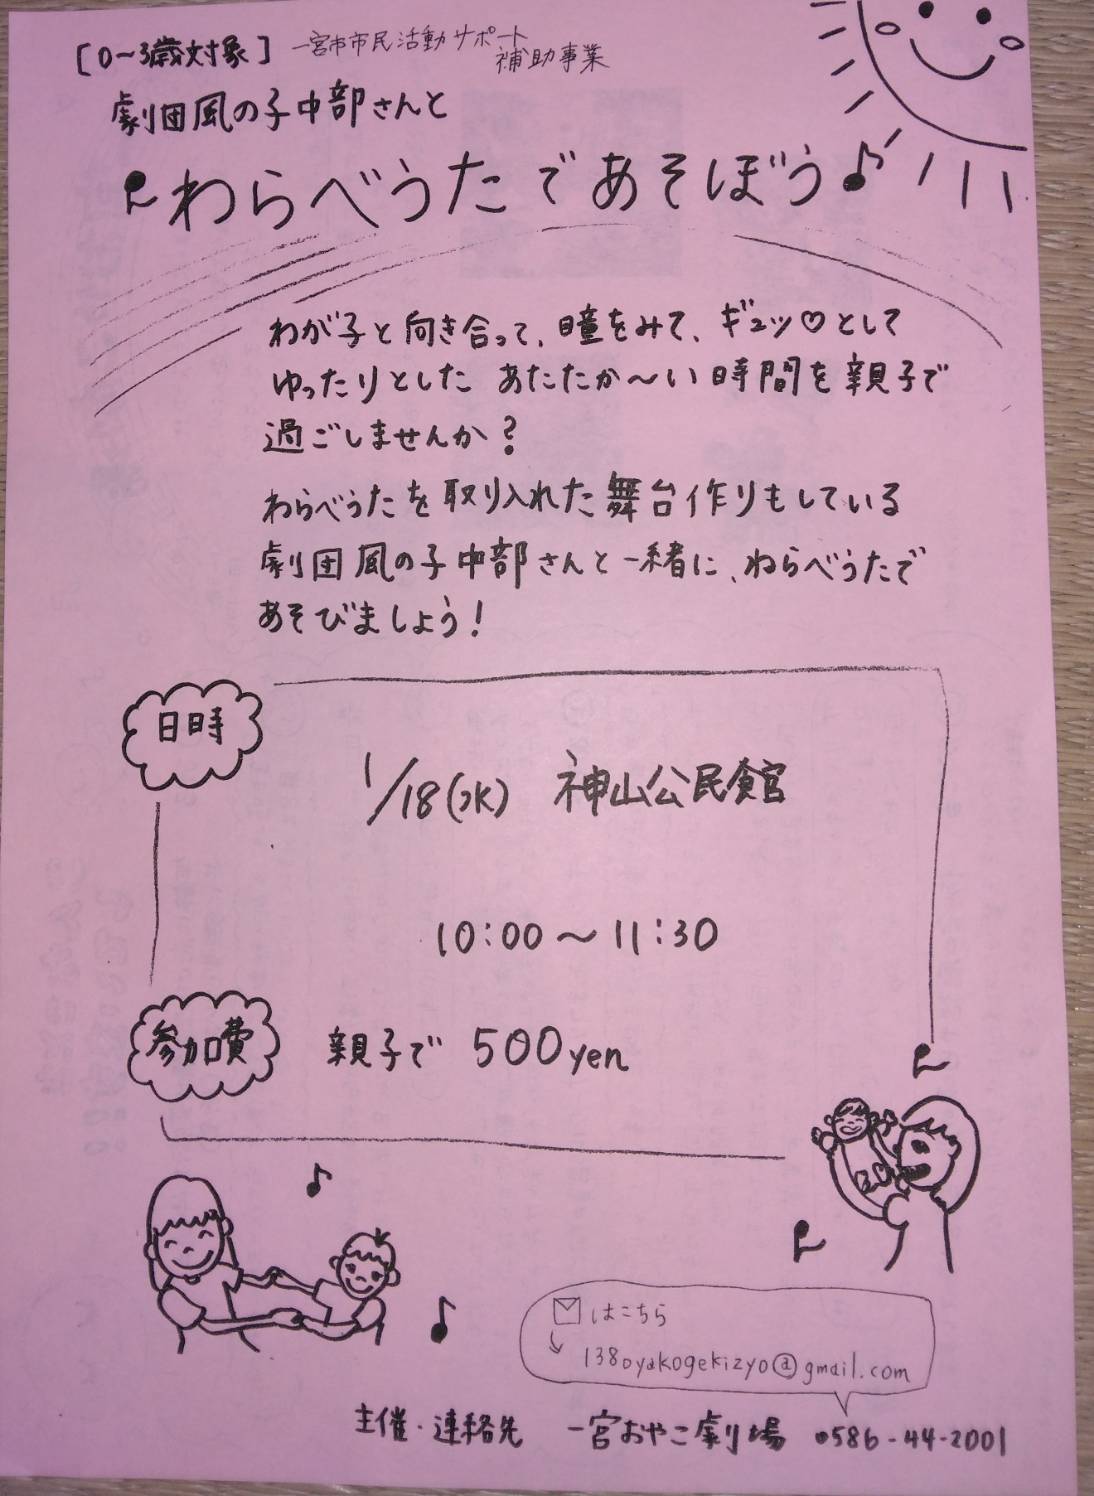 [0～3歳対象] 一宮市市民活動サポート
補助事業
劇団風の子中部さんと
わらべうたであそぼう
わが子と向き合って、瞳をみて、ギュッ♡として
ゆったりとした あたたか～い時間を親子で
過ごしませんか?
わらべうたを取り入れた舞台作りもしている
劇団風の子中部さんと一緒に、わらべうたで
あそびましょう!
日時
1/18(水) 神山公民館
10:00～11:30
参加費 親子で 500yen
はこちら
138oyakogekizyo@gmail.com
主催・連絡先 一宮おやこ劇場 0586-44-2001